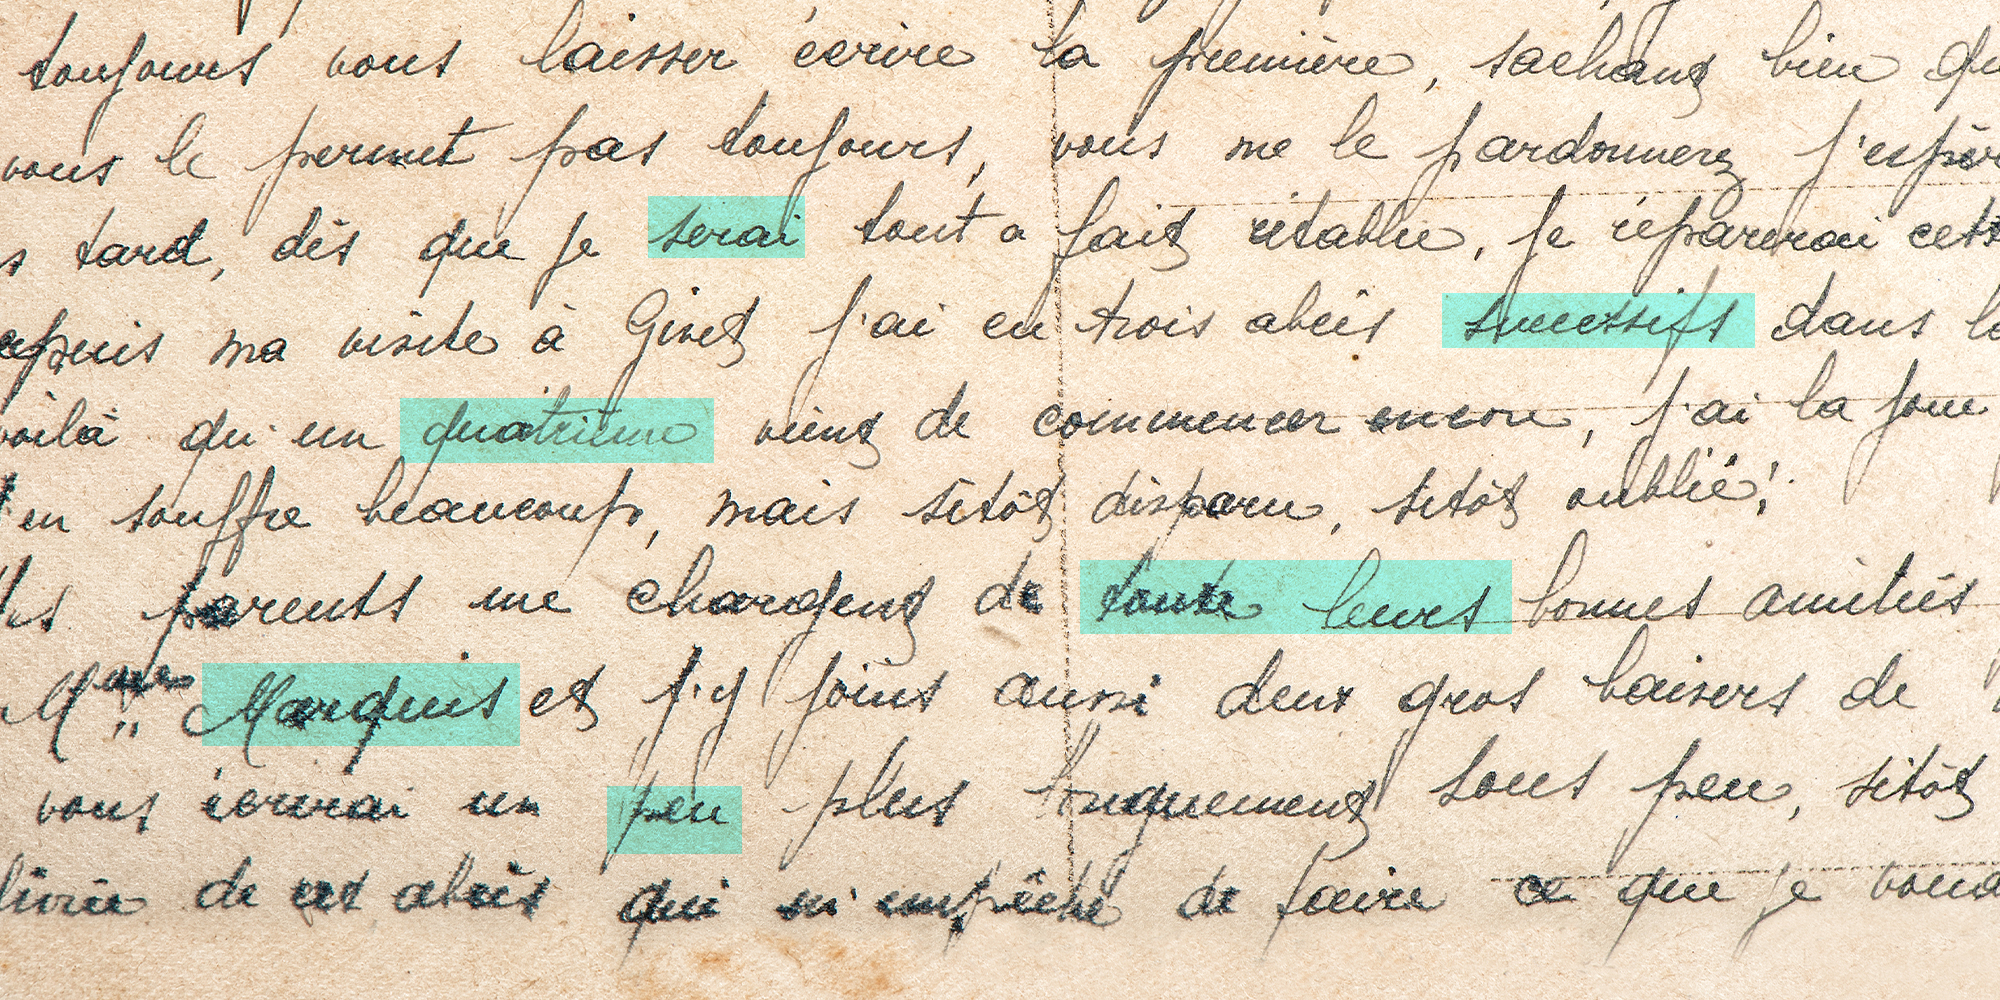 toujours vous laisser écrire la première, sachant bien qu
vous le permet pas toujours, vous me le pardonnerez j'espèr
s tard, dès que je serai tout a fait rétablie, je réparerai cett
epuis ma visite à Givet j'ai eu trois abcès successifs dans l
voilà qu'un quatrième vient de commencer encore, j'ai la joue
en souffre beaucoup, mais sitôt disparu, sitôt oublié!
es parents me chargent de toute leurs bonnes amitiés
Mme Marquis et j'y joins aussi deux gros baisers de
vous écrirai un peu plus longuement sous peu, sitôt
livrée de ces abcès qui m'empêche de faire ce que je voud